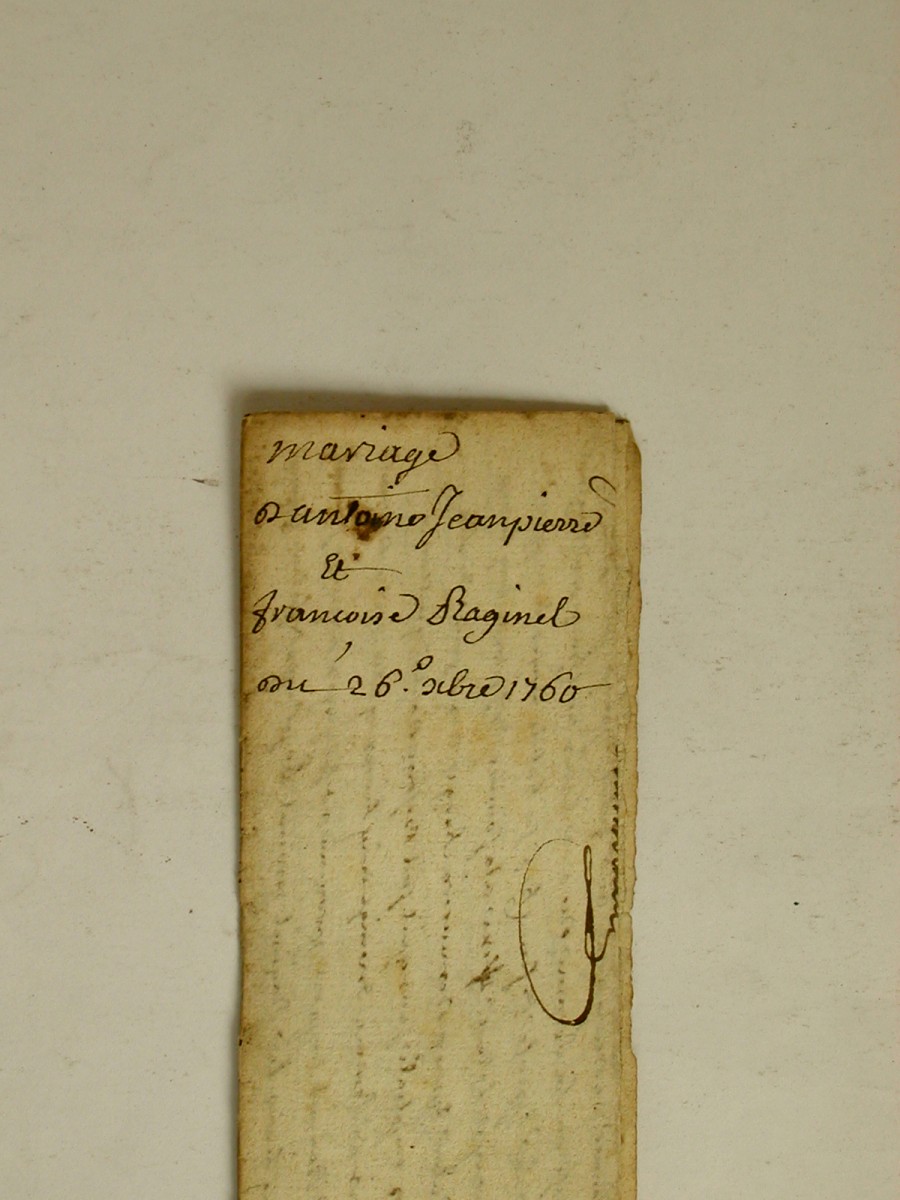 mariage
d'antoine Jeanpierre
Et
francoise Raginel
du 26.º xbre 1760